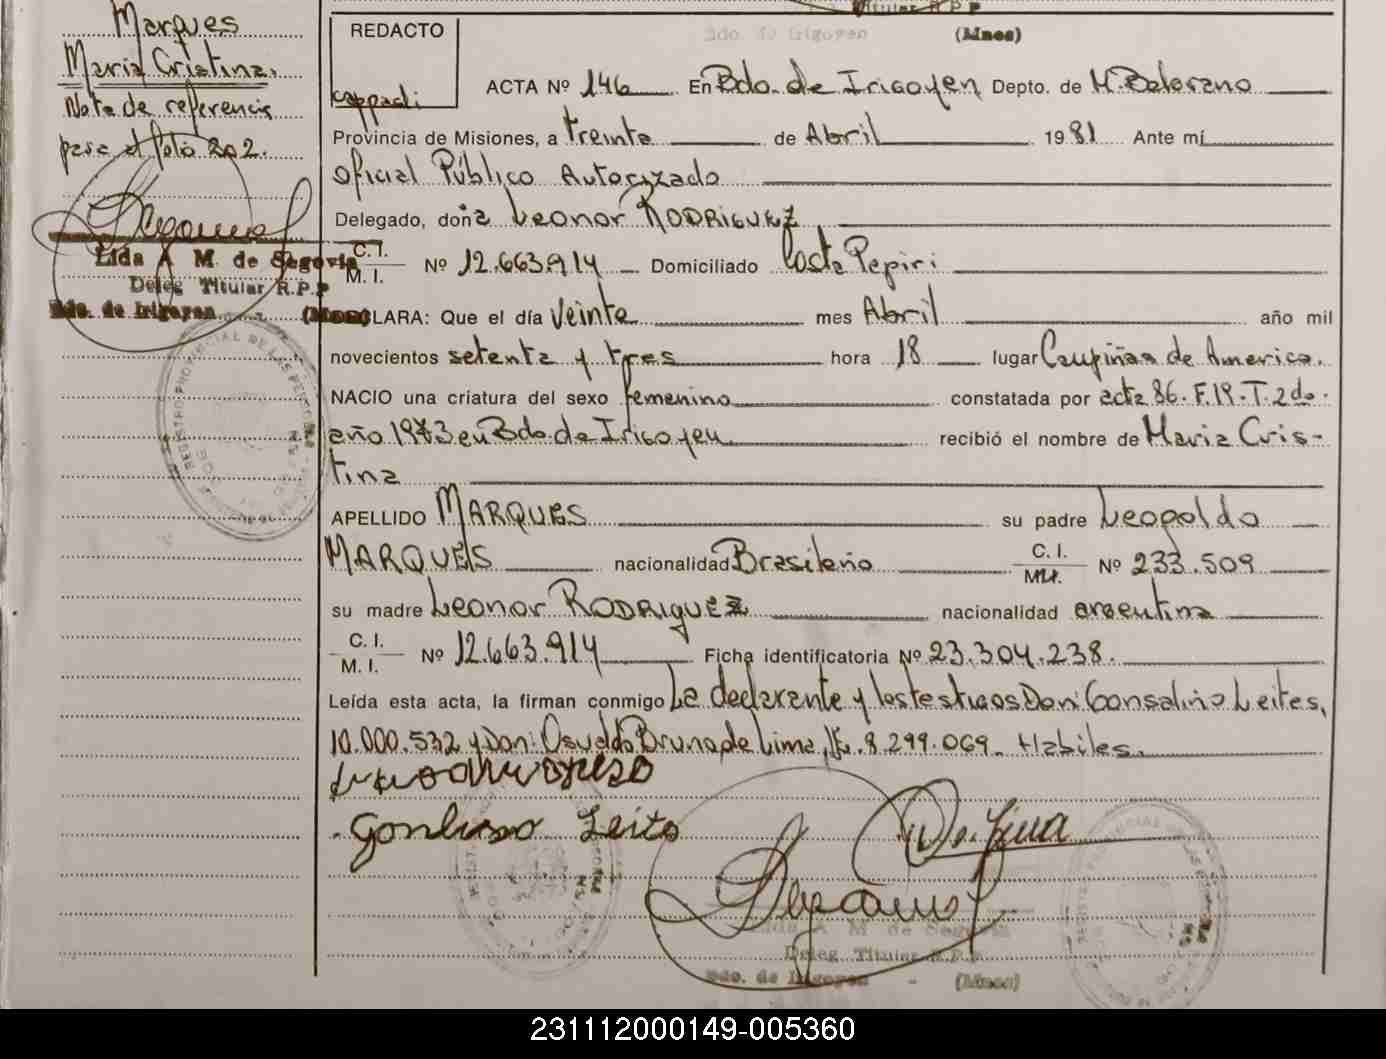 Marques
Maria Cristina.
Nota de referencia
para el folio 202.
Lida A M. de Segovia
Deleg Titular R.P.P
Bdo. de Irigoyen (Mnes)
Titular R.P.P
Bdo. de Irigoyen (Mnes)
REDACTO
cappadi
ACTA Nº 146 En Bdo. de Irigoyen Depto. de M. Belgrano
Provincia de Misiones, a treinta de Abril 1981 Ante mí
Oficial Público Autorizado
Delegado, doña Leonor RODRIGUEZ
C. I. M. I. Nº 12.663.914 Domiciliado Costa Pepiri
DECLARA: Que el día Veinte mes Abril año mil
novecientos setenta y tres hora 18 lugar Campiñas de America.
NACIO una criatura del sexo femenino constatada por acta 86. F.19. T. 2do.
año 1973 en Bdo. de Irigoyen recibió el nombre de Maria Cris-
tina
APELLIDO MARQUES su padre Leopoldo
MARQUES nacionalidad Brasileño C. I. Nº 233.509
su madre Leonor RODRIGUEZ nacionalidad argentina
C. I. M. I. Nº 12.663.914 Ficha identificatoria Nº 23.304.238.
Leída esta acta, la firman conmigo La declarante y los testigos Don: Gonsalino Leites,
10.000.532 y Don: Osvaldo Bruno de Lima, 8.299.069. Habiles.
Lida A M. de Segovia
Deleg Titular R.P.P
Bdo. de Irigoyen - (Mnes)
231112000149-005360